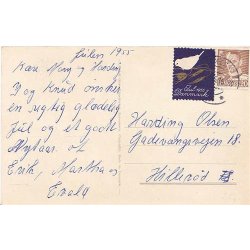 Julen 1955
Kære Mary og Harding
Dig og Knud ønskes
en rigtig glædelig
Jul og et godt
Nytaar af
Erik, Martha og
Harding Olsen
Gadevangsvejen 18.
Hillerød
Danmark